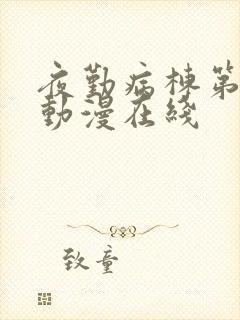 夜勤病栋第
動漫在綫
致童